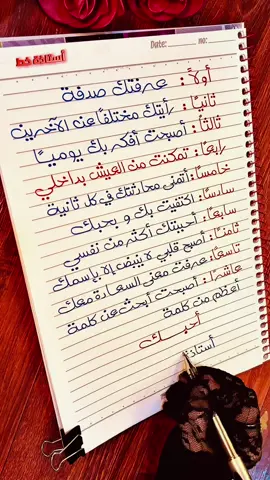 أستاذة خط
Date: no:
أولاً: عرفتك صدفة
ثانيًا: رأيتك مختلفًا عن الآخرين
ثالثًا: أصبحت أفكر بك يوميًا
رابعًا: تمكنت من العيش بداخلي
خامسًا: أتمنى محادثتك في كل ثانية
سادسًا: اكتفيت بك و بحبك
سابعا: أحببتك أكثر من نفسي
ثامنًا: أصبح قلبي لا ينبض إلا بإسمك
تاسعًا: عرفت معنى السعادة معك
عاشرًا: أصبحت أبحث عن كلمة
أعظم من كلمة
أحبك
أستاذة